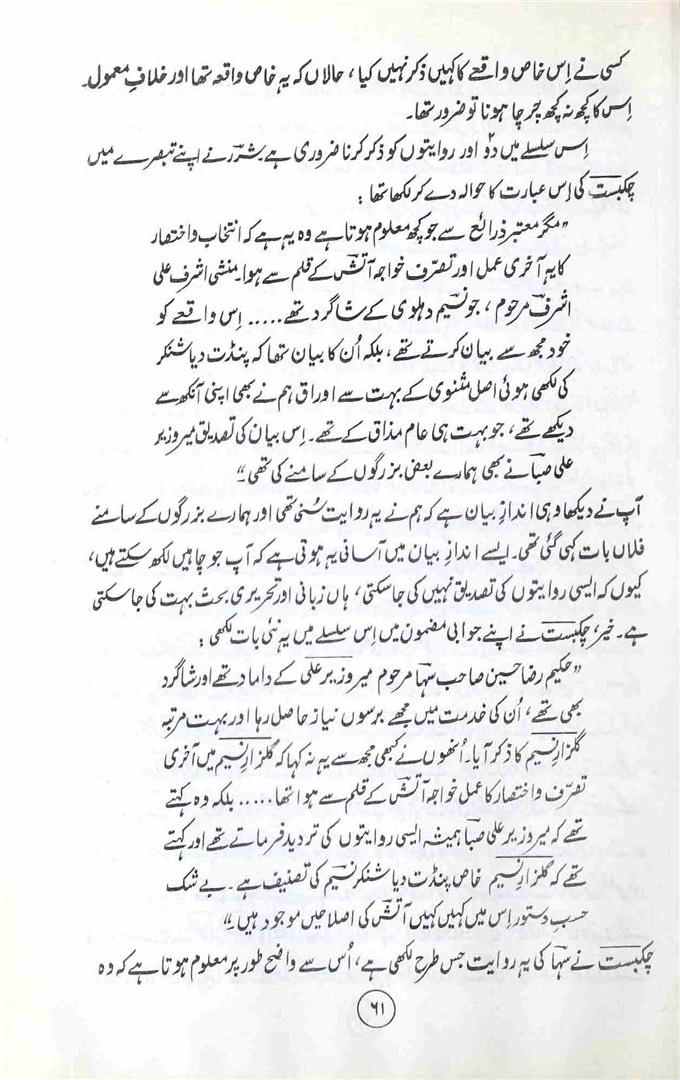 کسی نے اِس خاص واقعے کا کہیں ذکر نہیں کیا، حالاں کہ یہ خاص واقعہ تھا اور خلافِ معمول۔
اِس کا کچھ نہ کچھ چرچا ہونا تو ضرور تھا۔
اِس سلسلے میں دو۲ اور روایتوں کو ذکر کرنا ضروری ہے۔ شرر نے اپنے تبصرے میں
چکبست کی اِس عبارت کا حوالہ دے کر لکھا تھا:
”مگر معتبر ذرائع سے جو کچھ معلوم ہوتا ہے وہ یہ ہے کہ انتخاب و اختصار
کا یہ آخری عمل اور تصرّف خواجہ آتش کے قلم سے ہوا۔ منشی اشرف علی
اشرف مرحوم، جو نسیم دہلوی کے شاگرد تھے..... اِس واقعے کو
خود مجھ سے بیان کرتے تھے، بلکہ اُن کا بیان تھا کہ پنڈت دیا شنکر
کی لکھی ہوئی اصل مثنوی کے بہت سے اوراق ہم نے بھی اپنی آنکھ سے
دیکھے تھے، جو بہت ہی عام مذاق کے تھے۔ اِس بیان کی تصدیق میر وزیر
علی صبا نے بھی ہمارے بعض بزرگوں کے سامنے کی تھی۔“
آپ نے دیکھا وہی اندازِ بیان ہے کہ ہم نے یہ روایت سُنی تھی اور ہمارے بزرگوں کے سامنے
فلاں بات کہی گئی تھی۔ ایسے اندازِ بیان میں آسانی یہ ہوتی ہے کہ آپ جو چاہیں لکھ سکتے ہیں،
کیوں کہ ایسی روایتوں کی تصدیق نہیں کی جا سکتی، ہاں زبانی اور تحریری بحث بہت کی جا سکتی
ہے۔ خیر، چکبست نے اپنے جوابی مضمون میں اِس سلسلے میں یہ نئی بات لکھی:
”حکیم رضا حسین صاحب سہا مرحوم میر وزیر علی کے داماد تھے اور شاگرد
بھی تھے، اُن کی خدمت میں مجھے برسوں نیاز حاصل رہا اور بہت مرتبہ
گلزارِ نسیم کا ذکر آیا۔ اُنھوں نے کبھی مجھ سے یہ نہ کہا کہ گلزارِ نسیم میں آخری
تصرّف و اختصار کا عمل خواجہ آتش کے قلم سے ہوا تھا..... بلکہ وہ کہتے
تھے کہ میر وزیر علی صبا ہمیشہ ایسی روایتوں کی تردید فرماتے تھے اور کہتے
تھے کہ گلزارِ نسیم خاص پنڈت دیا شنکر نسیم کی تصنیف ہے۔ بے شک
حسبِ دستور اِس میں کہیں کہیں آتش کی اصلاحیں موجود ہیں۔“
چکبست نے سہا کی یہ روایت جس طرح لکھی ہے، اُس سے واضح طور پر معلوم ہوتا ہے کہ وہ
۶۱